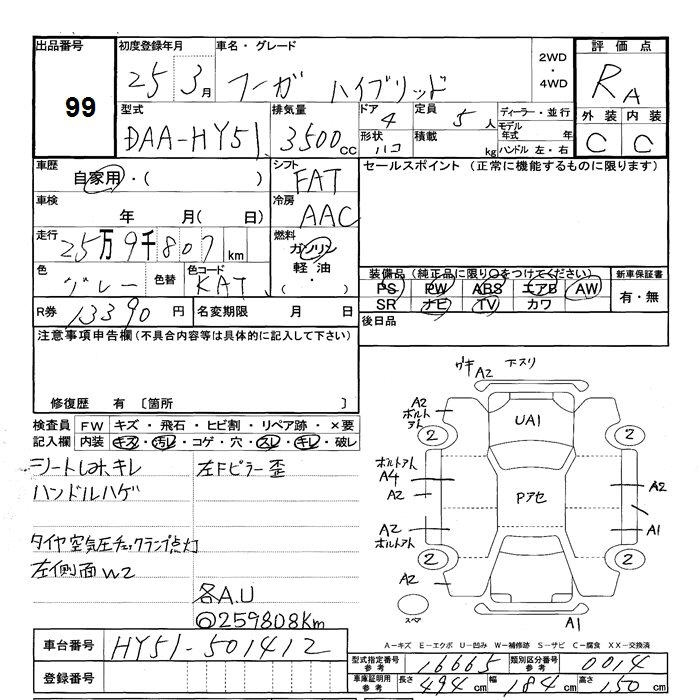 出品番号
99
初度登録年月
25 3月
車名・グレード
フーガ ハイブリッド
2WD
・
4WD
評価点
RA
外装 内装
C C
型式
DAA-HY51
排気量
3500cc
ドア
4
形状
ハコ
定員
5人
積載
kg
ディーラー・並行
モデル年式 年
ハンドル 左・右
車歴
自家用・( )
シフト
FAT
セールスポイント (正常に機能するものに限ります)
車検
年 月( 日)
冷房
AAC
走行
25万9千807km
燃料
ガソリン
軽油
・
( )
色
グレー
色替
色コード
KAT
装備品 (純正品に限り○をつけてください)
PS PW ABS エアB AW
SR ナビ TV カワ
新車保証書
有・無
R券 13390 円
名変期限 月 日
後日品
注意事項申告欄 (不具合内容等は具体的に記入して下さい)
修復歴 有 〔箇所 〕
検査員 FW キズ・飛石・ヒビ割・リペア跡・×要
記入欄 内装 キズ・汚レ・コゲ・穴・スレ・キレ・破レ
シートしみホ、キレ
左Fピラー歪
ハンドルハゲ
タイヤ空気圧チェックランプ点灯
左側面W2
各A.U
◎259808Km
ゲキ A2 下スリ
A2
ボルトアト
2
UA1
2
ボルトアト
A4
A2
Pアセ
A2
A2
ボルトアト
A1
2
2
A2
スペア
A1
A-キズ E-エクボ U-凹み W-補修跡 S-サビ C-腐食 XX-交換済
車台番号 HY51-501412
登録番号
型式指定番号参考 16665
類別区分番号参考 0014
車庫証明用参考 長さ 494cm 幅 184cm 高さ 150cm